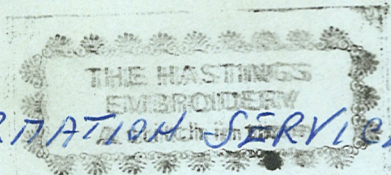 THE HASTINGS
EMBROIDERY
RMATION SERVICE